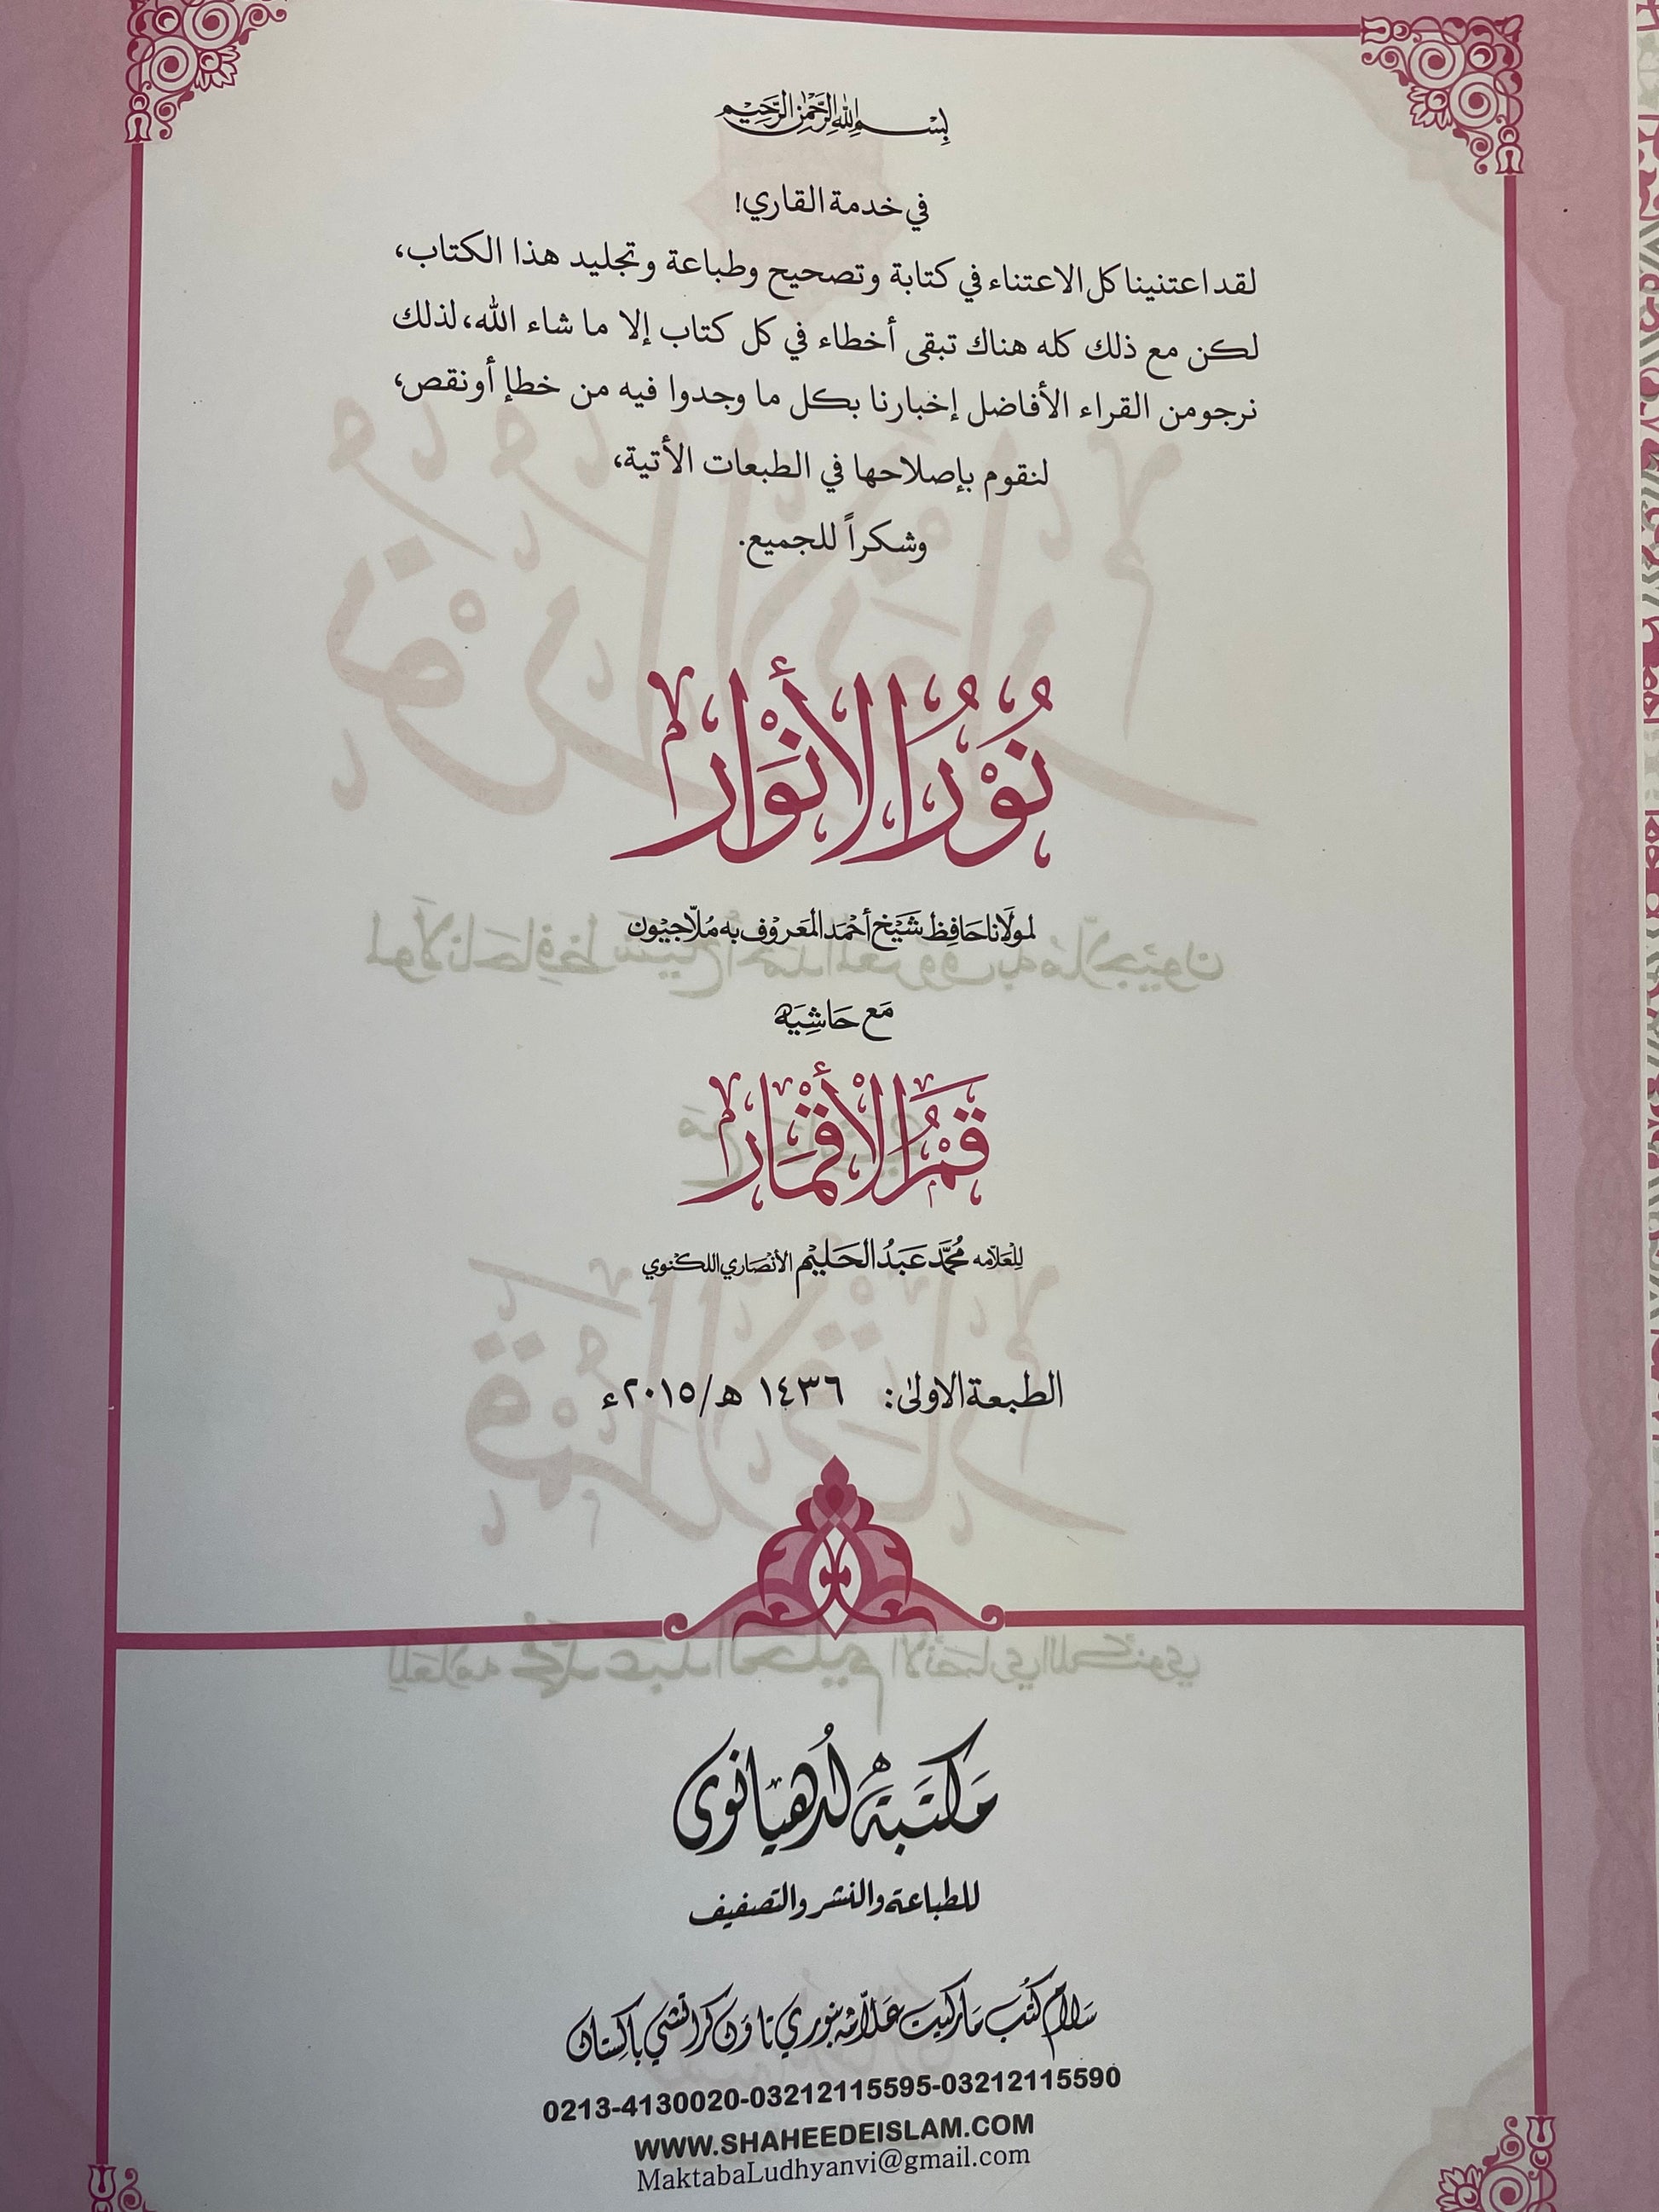 بِسْمِ اللهِ الرَّحْمٰنِ الرَّحِيْمِ
في خدمة القاري!
لقد اعتنينا كل الاعتناء في كتابة وتصحيح وطباعة وتجليد هذا الكتاب،
لكن مع ذلك كله هناك تبقى أخطاء في كل كتاب إلا ما شاء الله، لذلك
نرجو من القراء الأفاضل إخبارنا بكل ما وجدوا فيه من خطإ أو نقص،
لنقوم بإصلاحها في الطبعات الأتية،
وشكراً للجميع.
نُوْرُ الأَنْوَار
لمولَانا حَافِظ شَيْخ أحْمَد المَعَروْف به مُلّا جِيْوَن
مَع حَاشِيَه
قَمْرُ الأَقْمَار
لِلْعَلاّمه مُحَمَّد عَبَدُ الحَلِيْم الأنصَاري اللكنوي
الطبعة الاولىٰ: ١٤٣٦ هـ/٢٠١٥ء
مَكتَبَۂ لُدھیانوی
للطباعة والنشر والتصفيف
سَلام كُتُب مَاركيت عَلاّمه بنوري تاؤن كراتشي باكستان
0213-4130020-03212115595-03212115590
WWW.SHAHEEDEISLAM.COM
MaktabaLudhyanvi@gmail.com